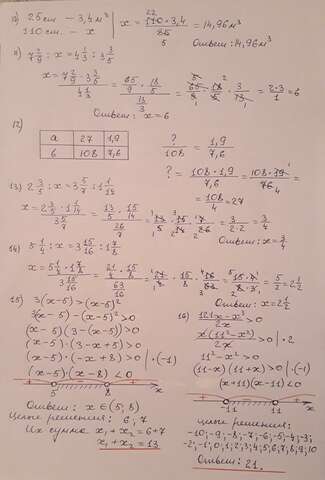 10) 25 см — 3,4 м³
110 см — x
x = 110·3,4 / 25 = 14,96 м³
Ответ: 14,96 м³
11) 7 2/9 : x = 4 1/3 : 3 3/5
x = 7 2/9 · 3 3/5 / 4 1/3 = 65/9 · 18/5 / 13/3 = 65/9 · 18/5 · 3/13 = 2·3/1 = 6
Ответ: x = 6
12)
a 27 1,9
b 108 7,6
?/108 = 1,9/7,6
? = 108·1,9/7,6 = 108·19/76 =
= 108/4 = 27
13) 2 3/5 : x = 3 5/7 : 1 1/14
x = 2 3/5 · 1 1/14 / 3 5/7 = 13/5 · 15/14 / 26/7 = 13/5 · 15/14 · 7/26 = 3/2·2 = 3/4
Ответ: x = 3/4
14) 5 1/4 : x = 3 15/16 : 1 7/8
x = 5 1/4 · 1 7/8 / 3 15/16 = 21/4 · 15/8 / 63/16 = 21/4 · 15/8 · 16/63 = 5/2 = 2 1/2
Ответ: x = 2 1/2
15) 3(x-5) > (x-5)²
3(x-5) - (x-5)² > 0
(x-5)(3-(x-5)) > 0
(x-5)·(3-x+5) > 0
(x-5)·(-x+8) > 0 | ·(-1)
(x-5)·(x-8) < 0
+ - + 5 8 x
Ответ: x ∈ (5; 8)
Целые решения: 6; 7
Их сумма x₁+x₂ = 6+7
x₁+x₂ = 13
16) 121x - x³ / 2x > 0
x(11²-x²) / 2x > 0 | ·2
11² - x² > 0
(11-x)(11+x) > 0 | ·(-1)
(x+11)(x-11) < 0
+ - + -11 11 x
целые решения:
-10; -9; -8; -7; -6; -5; -4; -3;
-2; -1; 0; 1; 2; 3; 4; 5; 6; 7; 8; 9; 10
Ответ: 21.